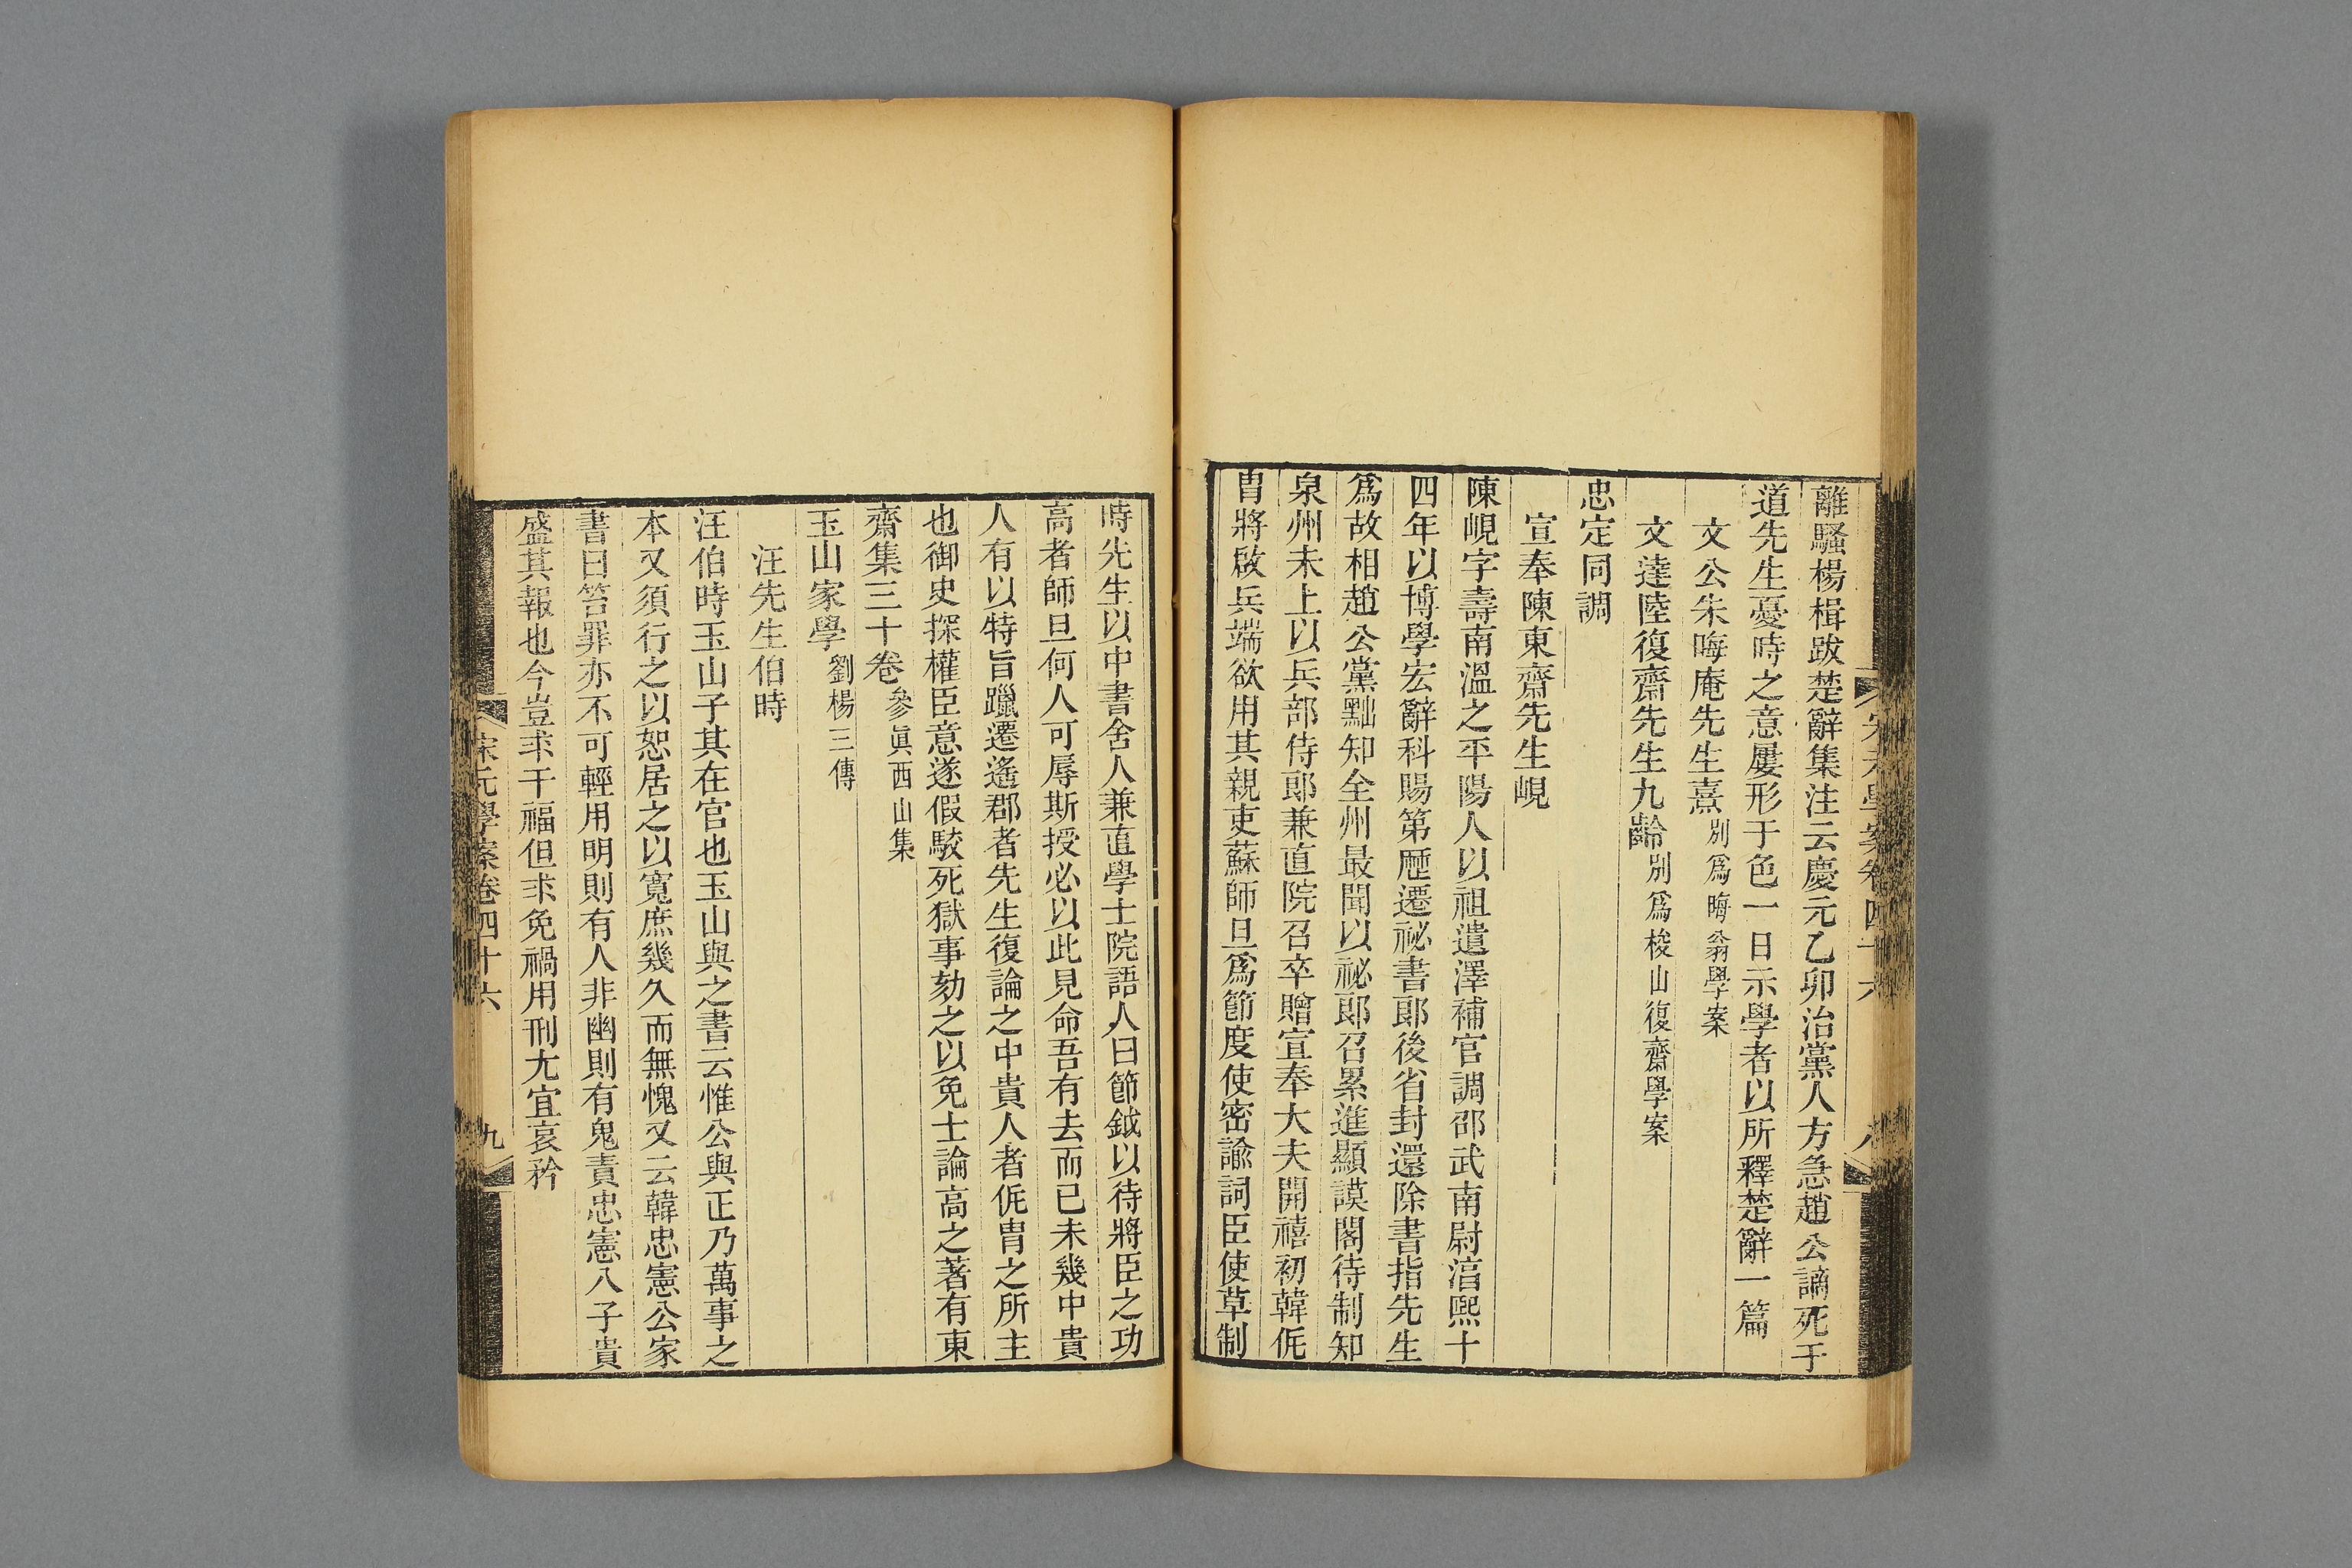 離騷楊楫跋楚辭集注云慶元乙卯治黨人方急趙公謫死于
道先生憂時之意屢形于色一日示學者以所釋楚辭一篇
文公朱晦庵先生熹別爲晦翁學案
文達陸復齋先生九齡別爲梭山復齋學案
忠定同調
宣奉陳東齋先生峴
陳峴字壽南溫之平陽人以祖遺澤補官調邵武南尉湻熙十
四年以博學宏辭科賜第歷遷祕書郞後省封還除書指先生
爲故相趙公黨黜知全州最聞以祕郞召累進顯謨閣待制知
泉州未上以兵部侍郞兼直院召卒贈宣奉大夫開禧初韓侂
胄將啟兵端欲用其親吏蘇師旦爲節度使密諭詞臣使草制
時先生以中書舍人兼直學士院語人曰節鉞以待將臣之功
高者師旦何人可辱斯授必以此見命吾有去而已未幾中貴
人有以特旨躐遷遙郡者先生復論之中貴人者侂胄之所主
也御史探權臣意遂假駮死獄事劾之以免士論高之著有東
齋集三十卷參眞西山集
玉山家學劉楊三傳
汪先生伯時
汪伯時玉山子其在官也玉山與之書云惟公與正乃萬事之
本又須行之以恕居之以寬庶幾久而無愧又云韓忠憲公家
書曰笞罪亦不可輕用明則有人非幽則有鬼責忠憲八子貴
盛其報也今豈求干福但求免禍用刑尢宜哀矜
宋元學案卷四十六
九